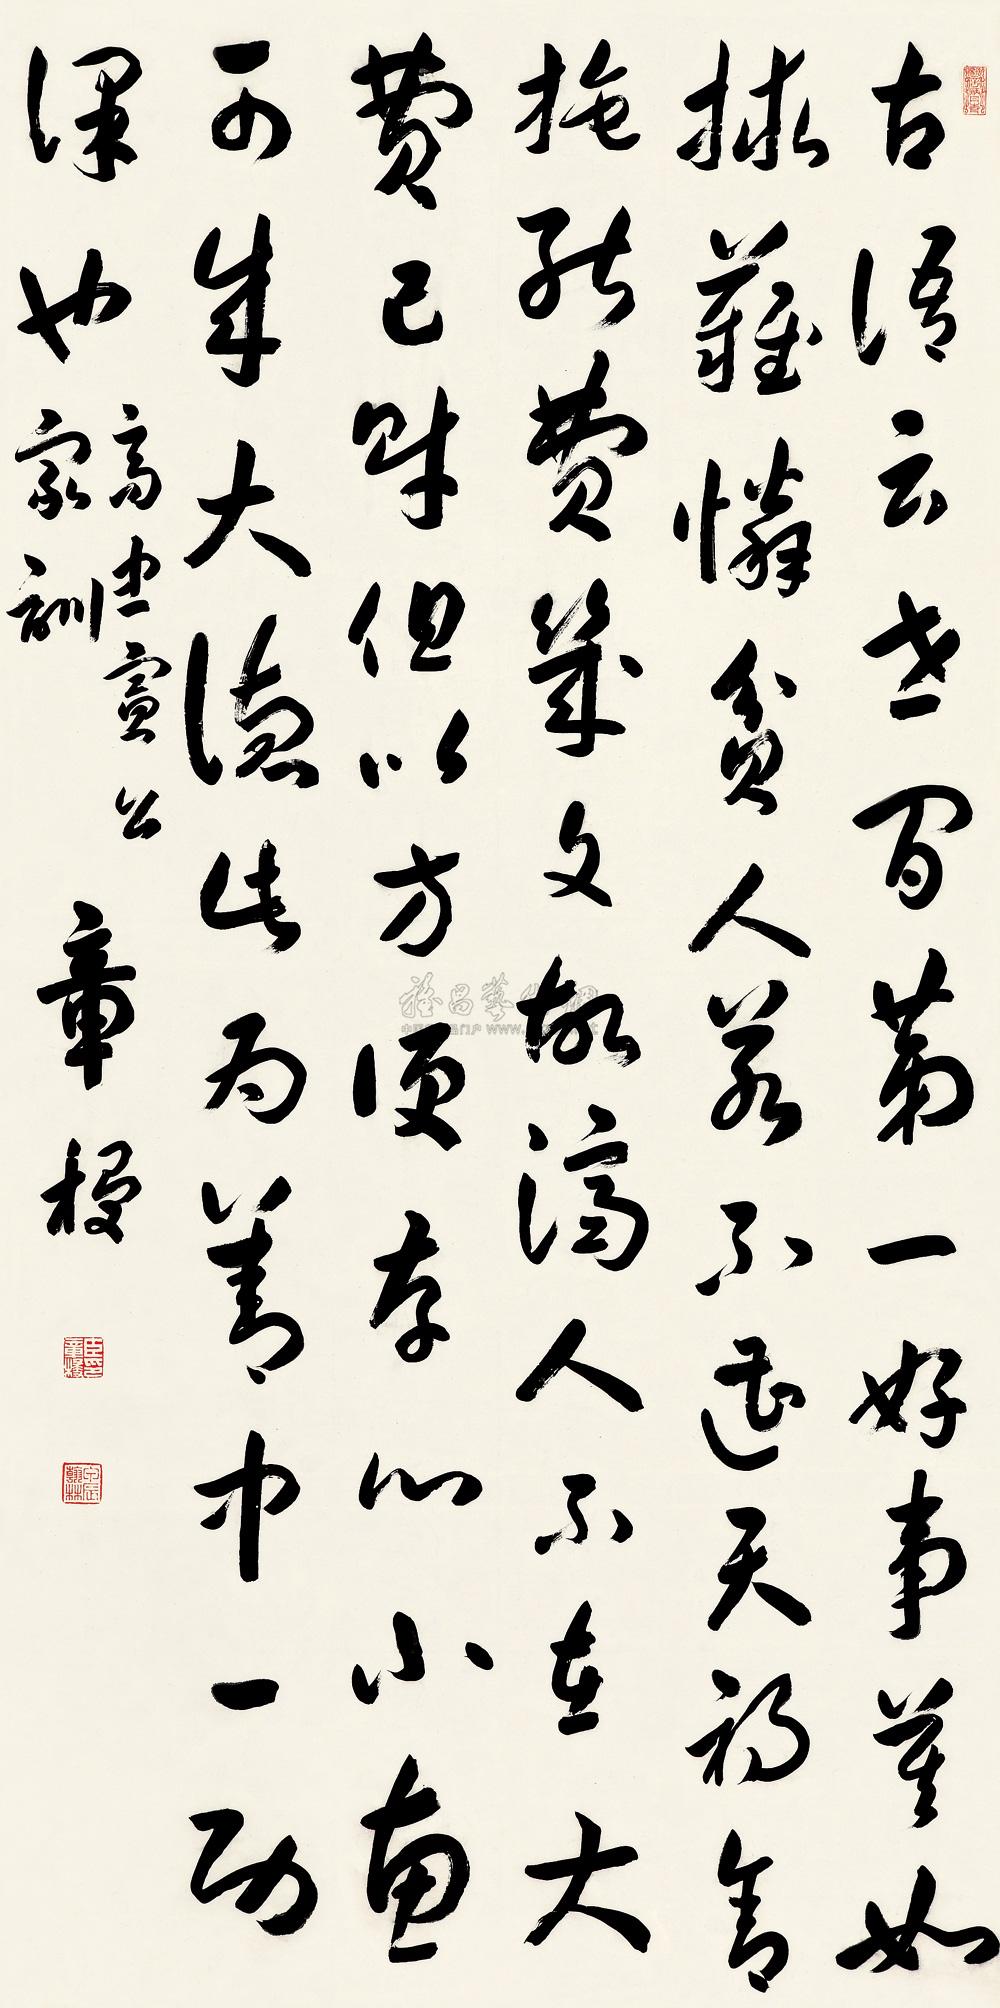 古語云世間第一好事莫如
救難憐貧人若不遭天禍舍
施能費幾文故濟人不在大
費己財但以方便存心小惠
可成大德此為善中一功
課也
高忠憲公
家訓
章梫